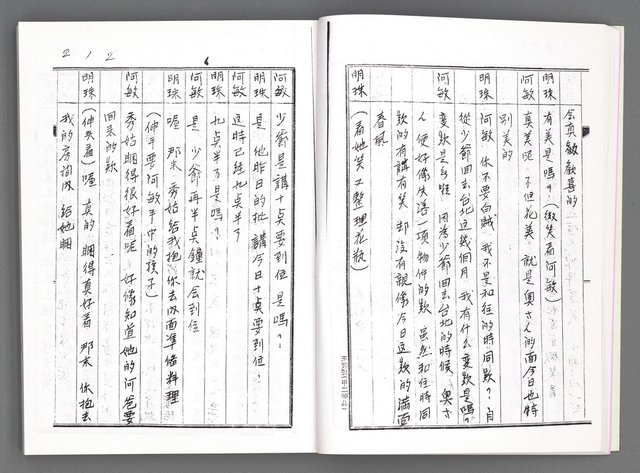 會真歡喜的
明珠 有美是嗎?(微笑看阿敏)
阿敏 真美呢 不但花美 就是奧さん的面今日也特
別美的
明珠 阿敏 你不要白賊 我不是和往的時同款?自
從少爺回去台北这幾個月 我有什么變款是嗎?
阿敏 變款是無啦 因為少爺回去台北的時候 奧さ
人便好像失落一項物件的款 雖然和往時同
款的有講有笑 却沒有親像今日这款的滿面
春風
明珠 (看她笑又整理花瓶)
212
阿敏 少爺是講十点要到位 是嗎?
明珠 是 他昨日的批 講今日十点要到位
阿敏 这時已經九点半了
明珠 九点半了是嗎?
阿敏 是 少爺再半点鐘就会到位
明珠 喔 那末 秀姑給我抱 你去内面準備料理
(伸手要阿敏手中的孩子)
阿敏 秀姑睏得很好看呢 好像知道她的阿爸要
回來的款
明珠 (伸头看)喔 真的 睏得真好看 那末 你抱去
我的房间内 給她睏